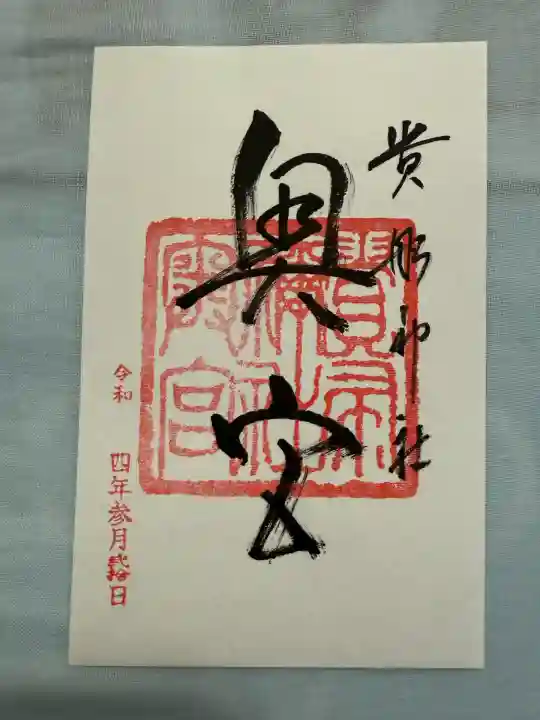 貴船神社
奥宮
貴船神社奥宮
令和 四年参月弐拾日